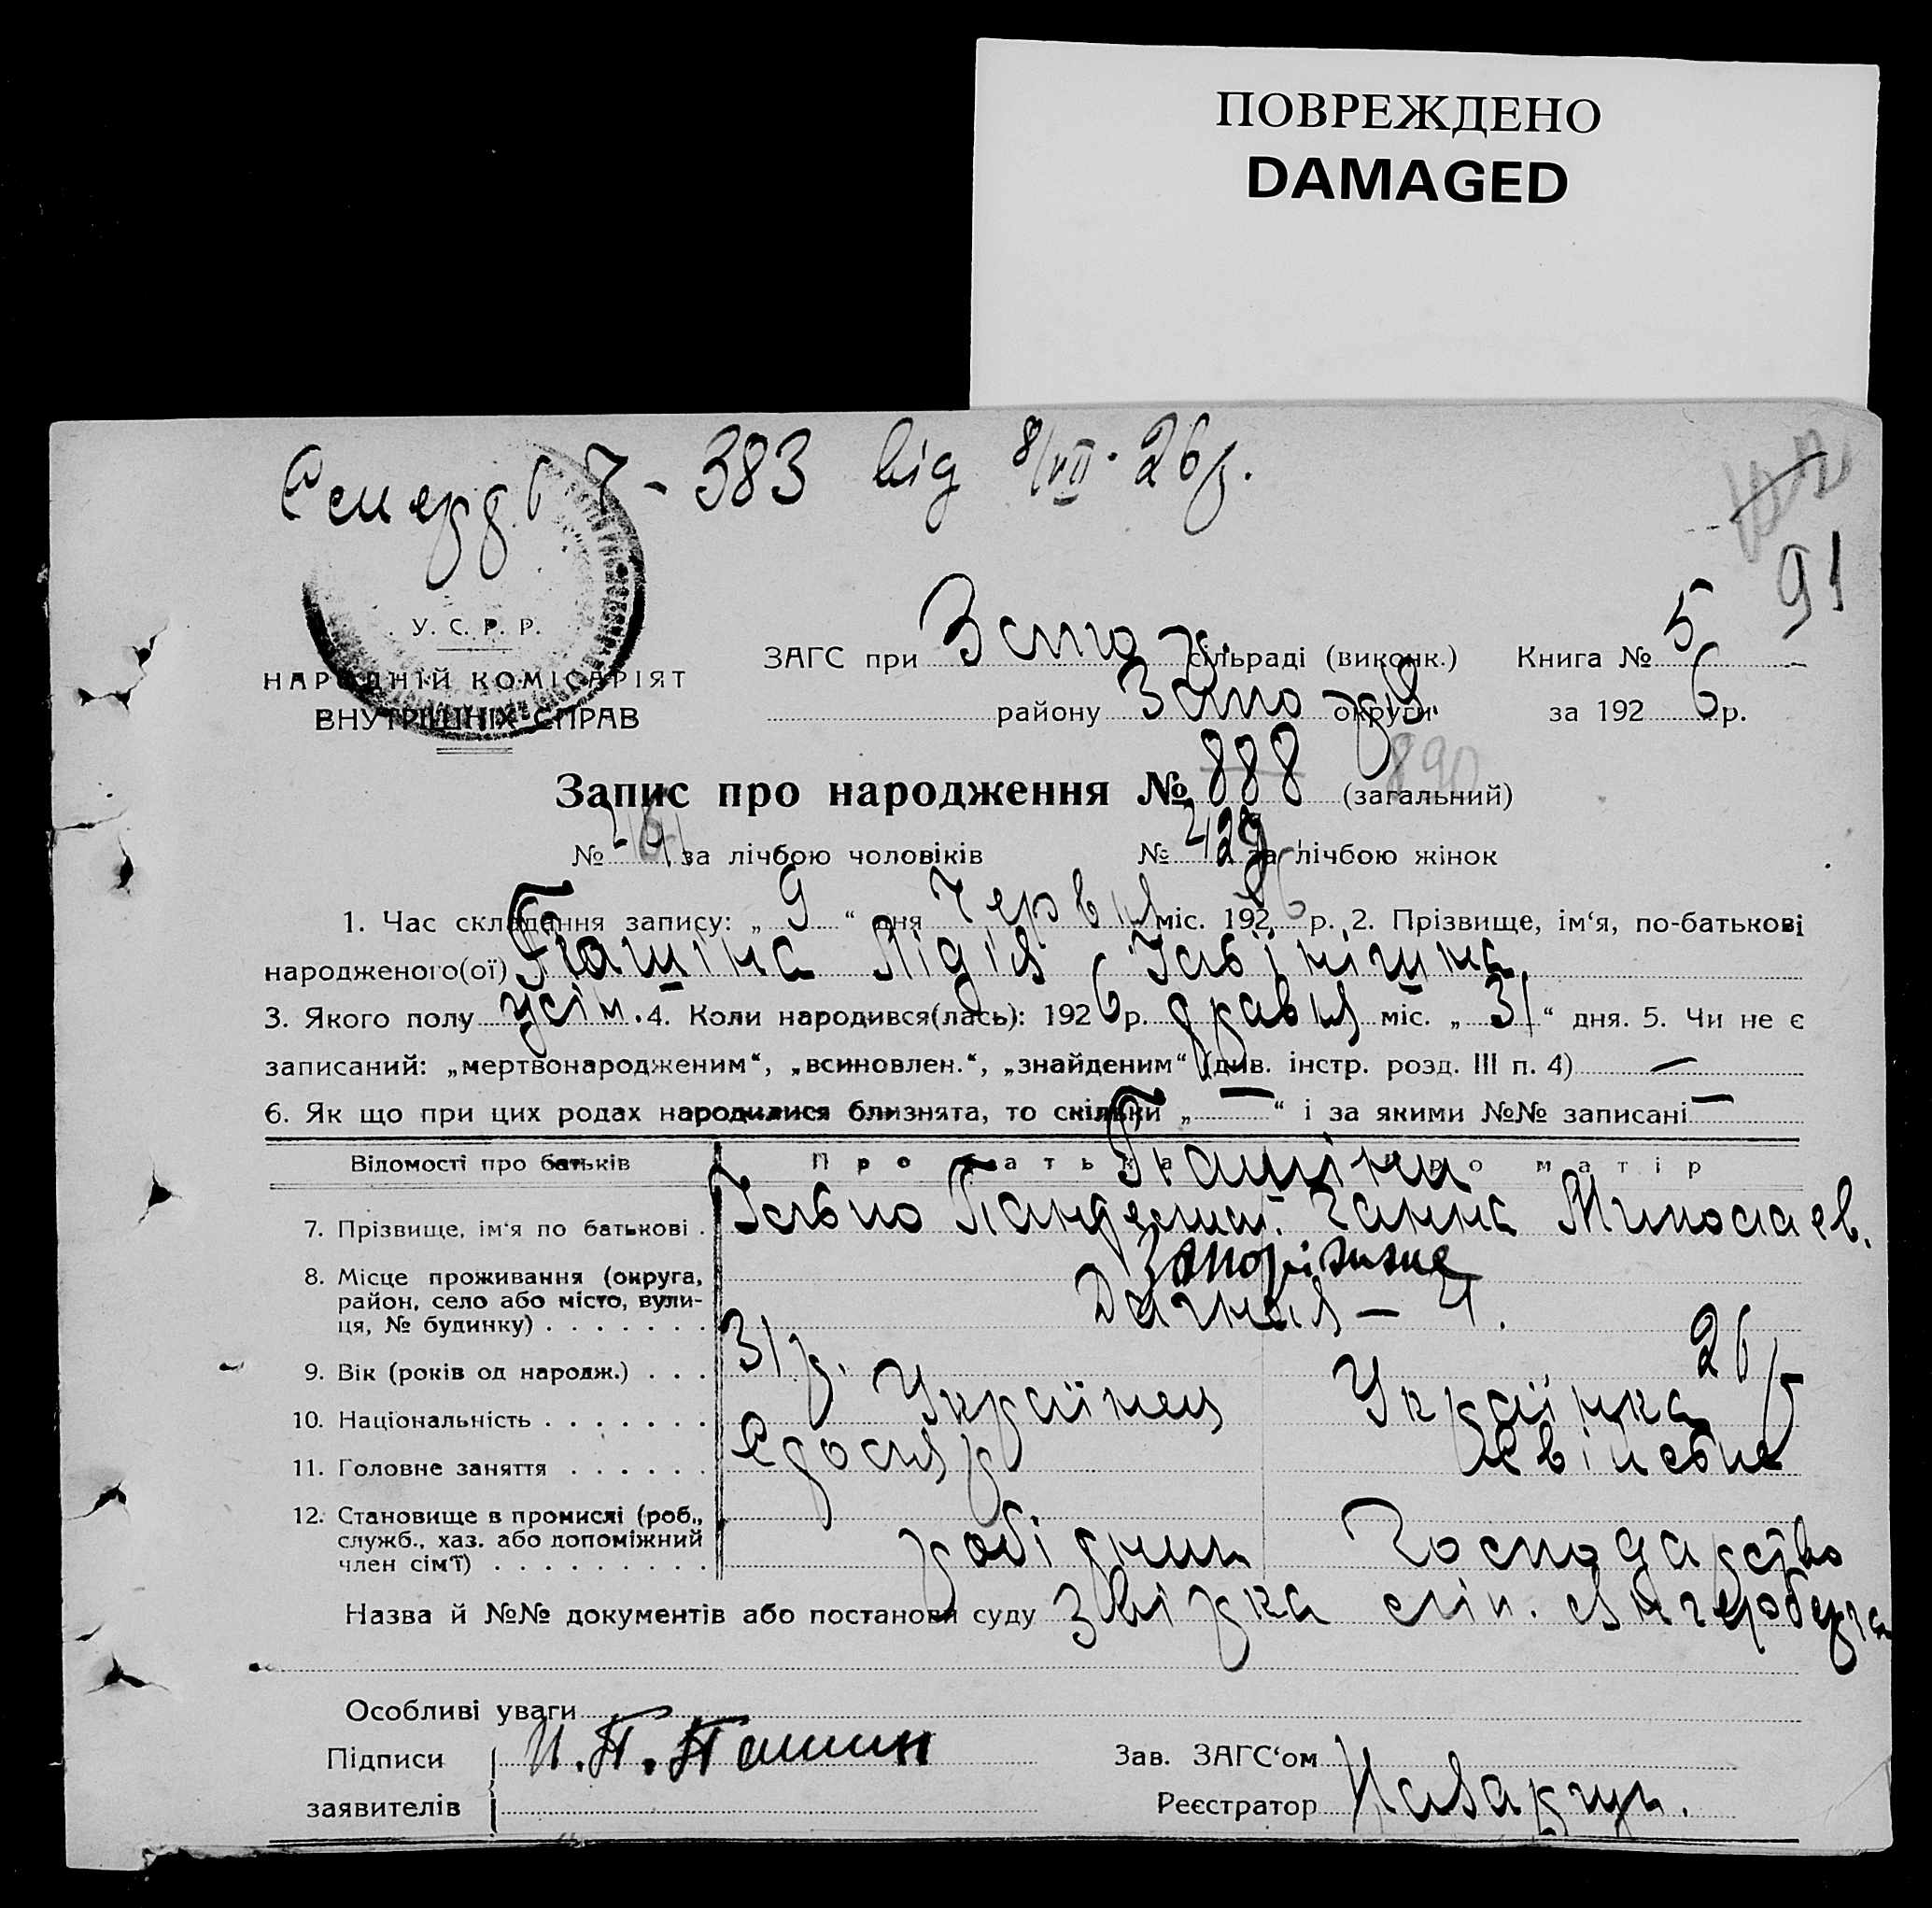 ПОВРЕЖДЕНО
DAMAGED
7-383 від 8/VII-26р.
91
У. С. Р. Р.
НАРОДНІЙ КОМІСАРІЯТ
ВНУТРІШНІХ СПРАВ
ЗАГС при Запор. сільраді (виконк.) Книга № 5
району Запор. округи за 1926 р.
Запис про народження № 888 (загальний) 890
№ за лічбою чоловіків № 429 за лічбою жінок
1. Час складання запису: „ 9 “ дня Червня міс. 1926 р. 2. Прізвище, ім‘я, по-батькові
народженого(ої) Пашіна Лідія
3. Якого полу жін. 4. Коли народився(лась): 1926 р. травня міс. „ 31 “ дня. 5. Чи не є
записаний: „мертвонародженим“, „всиновлен.“, „знайденим“ (див. інстр. розд. III п. 4) —
6. Як що при цих родах народилися близнята, то скільки „ — “ і за якими №№ записані —
Відомості про батьків Про батька Про матір
Пашіни
7. Прізвище, ім‘я по батькові . Ганна Миколаев.
8. Місце проживання (округа, Запоріжжя
район, село або місто, вули- Дачная – 4.
ця, № будинку) . . . . . . .
9. Вік (років од народж.) . . . 31 р. 26 р
10. Національність . . . . . . . Українец Українка
11. Головне заняття . . . . . . слюсар
12. Становище в промислі (роб.,
служб., хаз. або допоміжний робітник Господарство
член сім‘ї) . . . . . . . . .
Назва й №№ документів або постанови суду
Особливі уваги
Підписи И. П. Пашин Зав. ЗАГС‘ом
заявителів Реєстратор